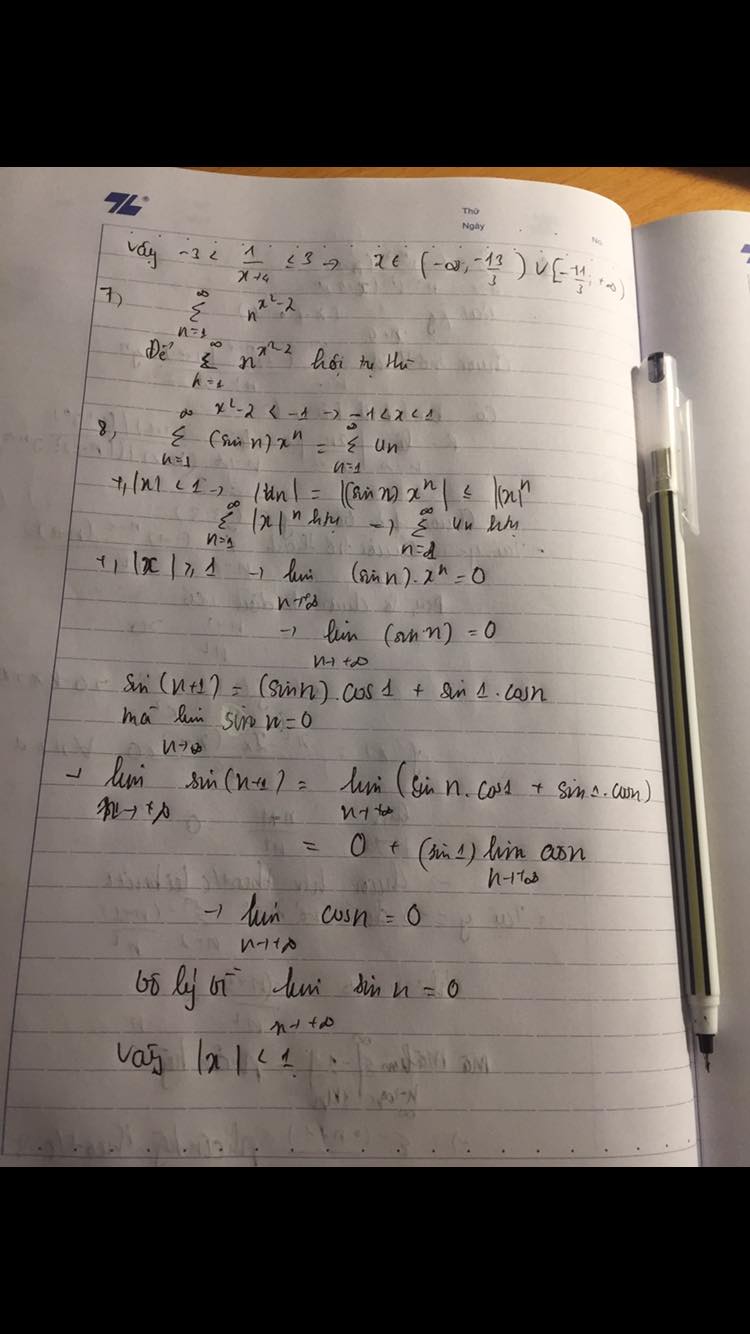 TL®
Thứ
Ngày
No.
Vậy -3 < 1/(x+4) ≤ 3 → x ∈ (-∞, -13/3) ∪ [-11/3, +∞)
7, ∞ Σ n=1 n^(x²-2)
Để ∞ Σ n=1 n^(x²-2) hội tụ thì
x²-2 < -1 → -1<x<1
8, ∞ Σ n=1 (sin n) xⁿ = ∞ Σ n=1 un
+, |x| < 1 → |un| = |(sin n) xⁿ| ≤ |x|ⁿ
∞ Σ n=1 |x|ⁿ htụ → ∞ Σ n=1 un htụ
+, |x| ≥ 1 → lim n→+∞ (sin n).xⁿ = 0
→ lim n→+∞ (sin n) = 0
sin(n+1) = (sin n).cos1 + sin1.cosn
mà lim n→∞ sin n = 0
→ lim n→+∞ sin(n+1) = lim n→+∞ (sin n.cos1 + sin1.cosn)
= 0 + (sin1) lim n→+∞ cosn
→ lim n→+∞ cosn = 0
Vô lý vì lim n→+∞ sin n = 0
Vậy |x| < 1